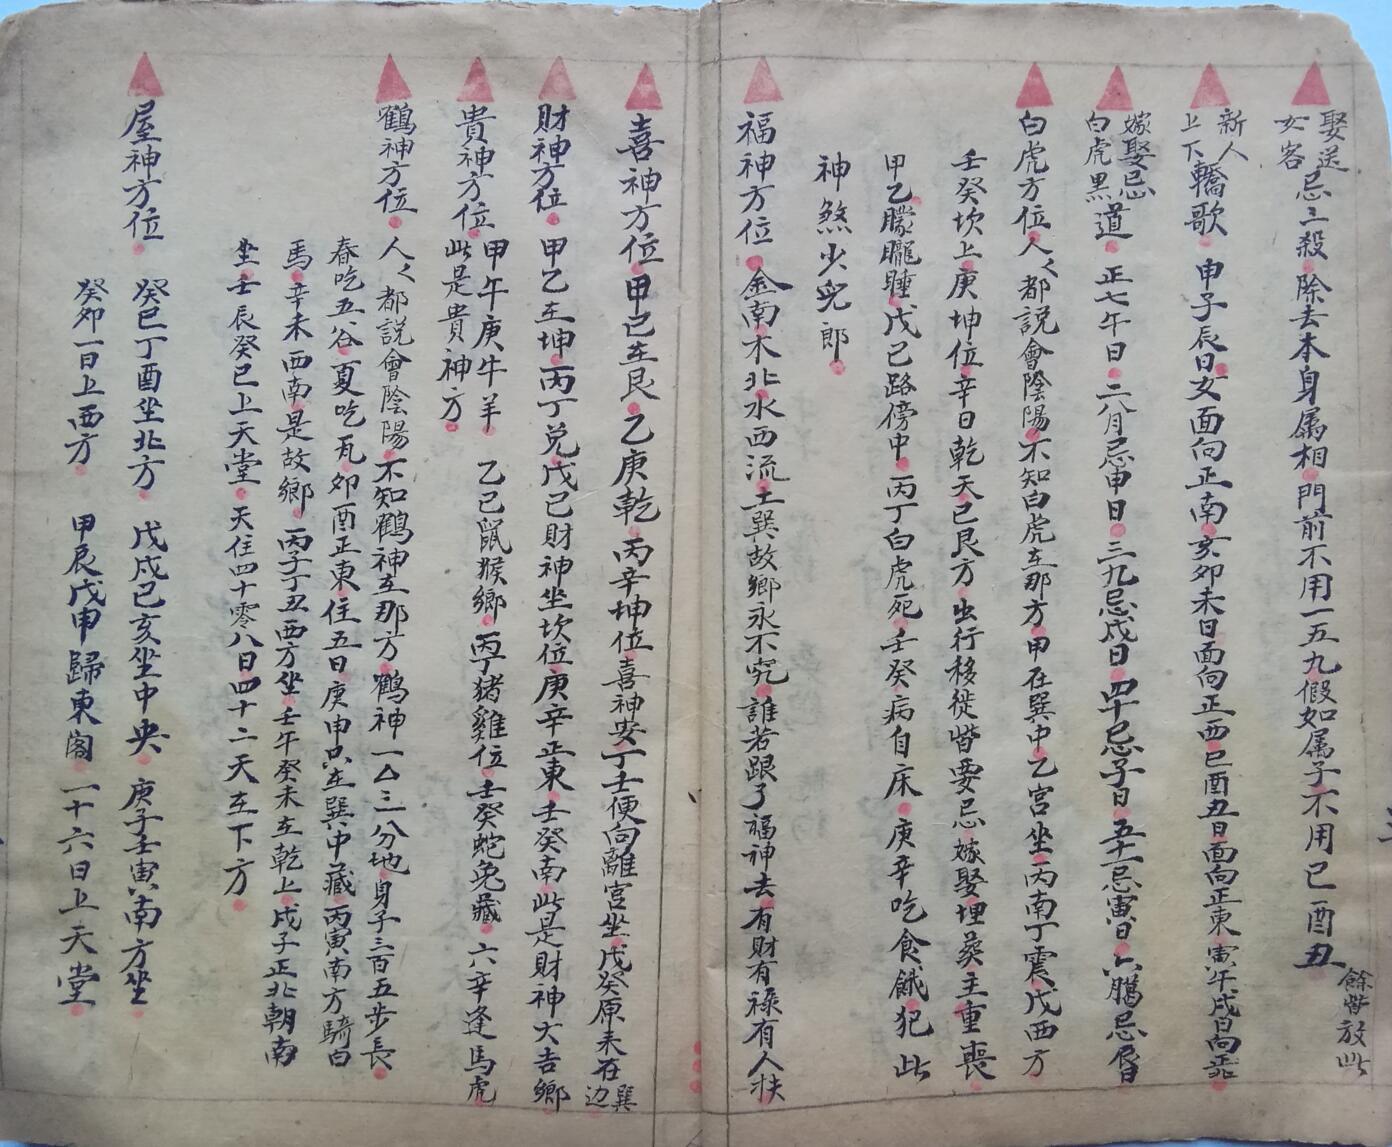 娶送女客忌三殺除去本身属相門前不用一五九假如属子不用巳酉丑餘皆放此
新人上下轎歌申子辰日女面向正南亥卯未日面向正西巳酉丑日面向正東寅午戌日向正北
嫁娶忌白虎黑道正七午日二八月忌申日三九忌戌日四十忌子日五十一忌寅日六臘忌辰日
白虎方位人々都説會陰陽不知白虎在那方甲在巽中乙宮坐丙南丁震戊西方
壬癸坎上庚坤位辛日乾天己艮方出行移徙皆要忌嫁娶埋葬主重喪
甲乙朦朧睡戊己路傍中丙丁白虎死壬癸病自床庚辛吃食餓犯此
神煞少兒郎
福神方位金南木北水西流土巽故鄉永不究誰若跟了福神去有財有祿有人扶
喜神方位甲己在艮乙庚乾丙辛坤位喜神安丁壬便向離宮坐戊癸原来在巽边
財神方位甲乙在坤丙丁兌戊己財神坐坎位庚辛正東壬癸南此是財神大吉鄉
貴神方位甲午庚牛羊乙己鼠猴鄉丙丁猪雞位壬癸蛇兔藏六辛逢馬虎
此是貴神方
鶴神方位人々都說會陰陽不知鶴神在那方鶴神一△三分地身子三百五步長
春吃五谷夏吃瓦卯酉正東住五日庚申只在巽中藏丙寅南方騎白
馬辛未西南是故鄉丙子丁丑西方坐壬午癸未在乾上戊子正北朝南
坐壬辰癸巳上天堂天住四十零八日四十二天在下方
屋神方位癸巳丁酉坐北方戊戌己亥坐中央庚子壬寅南方坐
癸卯一日上西方甲辰戊申歸東閣一十六日上天堂